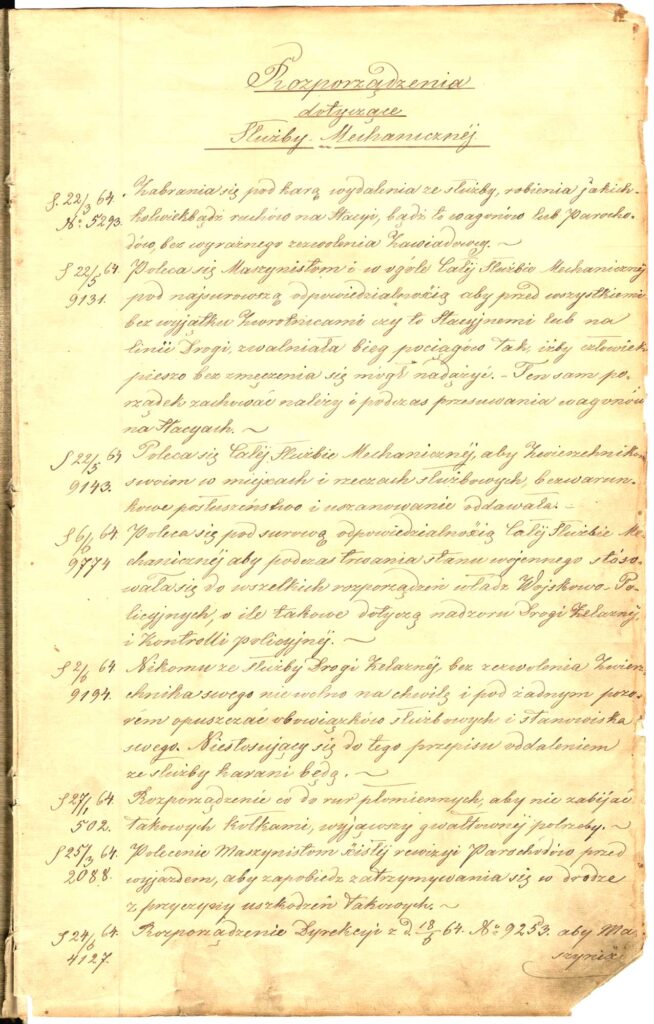 Rozporządzenia
dotyczące
Służby Mechanicznéj
d. 22/3 64. Zabrania się pod karą wydalenia ze służby, robienia jakich-
No 5293. kolwiekbądź ruchów na Stacyi, bądź to wagonów lub Parocho-
dów, bez wyraźnego zezwolenia Zawiadowcy. ~
d 22/5 64 Poleca się Maszynistom i w ogóle Całéj Służbie Mechanicznéj
9131. pod najsurowszą odpowiedzialnością aby przed wszystkiemi
bez wyjątku Zwrotnicami czy to Stacyjnemi lub na
linii Drogi, zwalniała bieg pociągów tak, iżby człowiek
pieszo bez zmęczenia się mógł nadążyć. – Ten sam po-
rządek zachować należy i podczas przesuwania wagonów
na Stacyach. ~
d 22/5 64 Poleca się Całéj Służbie Mechanicznéj, aby Zwierzchnikom
9143. swoim w miejscach i rzeczach służbowych, bezwarun-
kowe posłuszeństwo i uszanowanie oddawała. –
d 6/6 64 Poleca się pod surową odpowiedzialnością Całéj Służbie Me-
9774 chanicznéj aby podczas trwania stanu wojennego stóso-
wała się do wszelkich rozporządzeń władz Wojskowo-Po-
licyjnych, o ile takowe dotyczą nadzoru Drogi Żelaznéj
i Kontrolli policyjnéj. ~
d 2/6 64 Nikomu ze służby Drogi Żelaznéj, bez zezwolenia Zwierz-
9194. chnika swego nie wolno na chwilę i pod żadnym pozo-
rem opuszczać obowiązków służbowych i stanowiska
swego. Niestosujący się do tego przepisu oddaleniem
ze służby karani będą. ~
d 27/1 64. Rozporządzenie co do rur płomiennych, aby nie zabijać
502. takowych kołkami, wyjąwszy gwałtownéj potrzeby. ~
d 25/3 64. Polecenie Maszynistom ścisłéj rewizyi Parochodów przed
2088. wyjazdem, aby zapobiedz zatrzymywania się w drodze
z przyczyny uszkodzeń takowych. ~
d 24/6 64. Rozporządzenie Dyrekcyi z d. 18/5 64. No 9253. aby Ma-
4127. szyniści